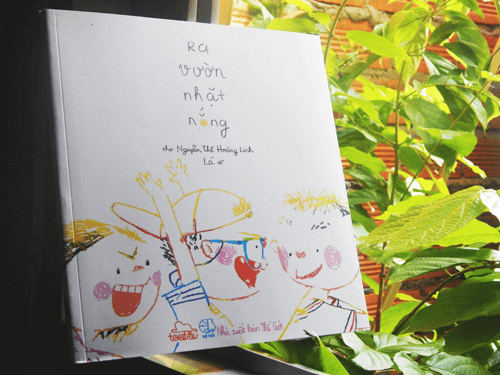 ra
vườn
nhặt
nắng
thơ Nguyễn Thế Hoàng Linh
Lá vẽ
Nhà xuất bản Thế Giới